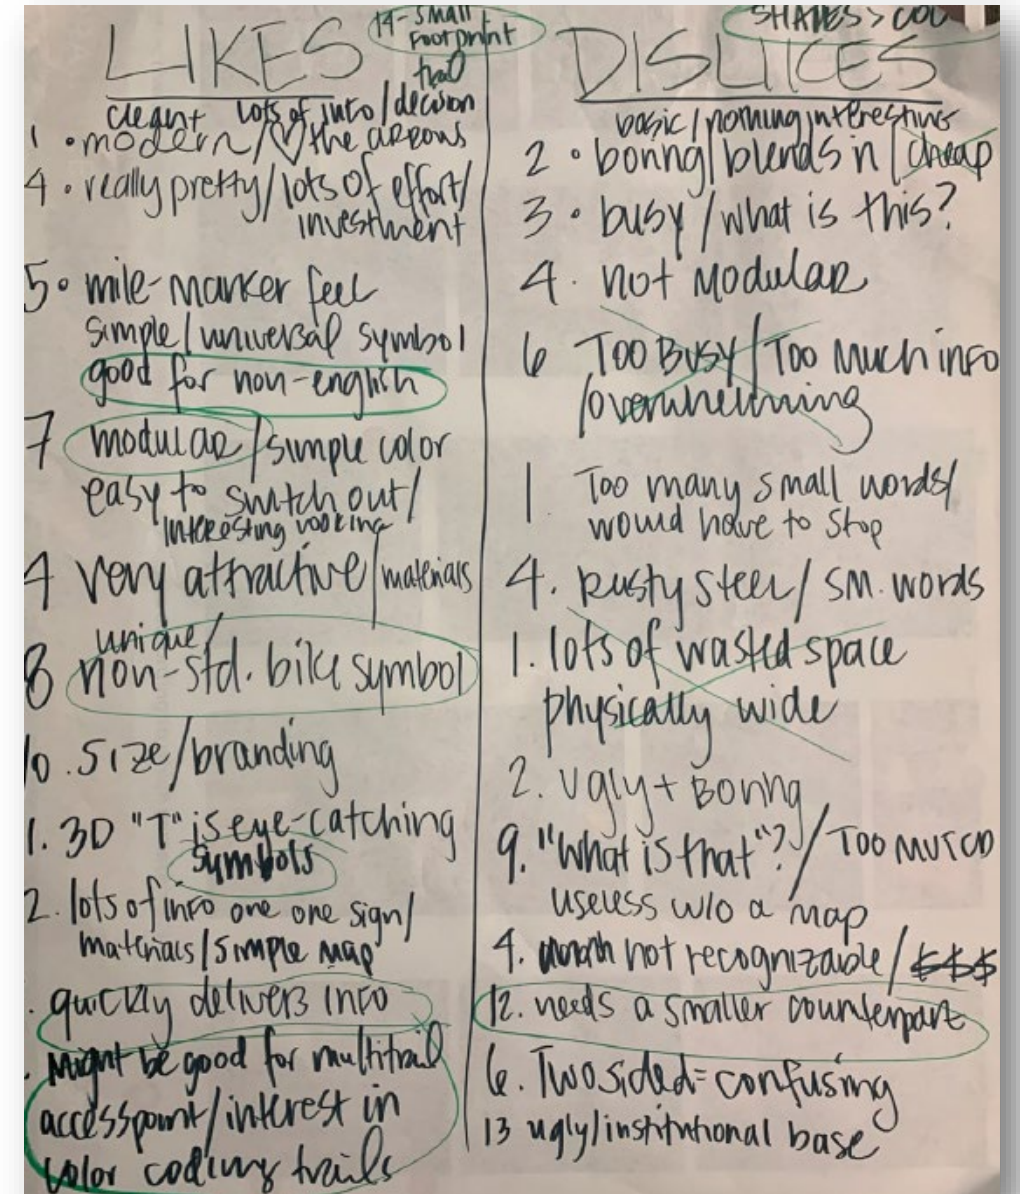 LIKES
14- Small
footprint
trail
elegant lots of info/decision
1 • modern/♡ the arrows
4 • really pretty/lots of effort/
investment
5 • mile-marker feel
simple/universal symbol
good for non-english
7 modular/simple color
easy to switch out/
interesting looking
4 very attractive/materials
unique/
8 non-std. bike symbol
10. size/branding
1. 3D "T" is eye-catching
symbols
2. lots of info one one sign/
materials/simple map
. quickly delivers info
. Might be good for multitrail
accesspoint/interest in
color coding trails
SHAPES >
DISLIKES
basic/nothing interesting
2 • boring/blends in/cheap
3 • busy/what is this?
4. not modular
6 Too Busy/Too Much info
/overwhelming
1 Too many small words/
would have to stop
4. Rusty steel/ SM. words
1. lots of wasted space
physically wide
2. Ugly + Boring
9. "What is that"?/Too MUTCD
useless w/o a map
4. not recognizable/$$$
12. needs a smaller counterpart
6. Two sided = confusing
13 ugly/institutional base